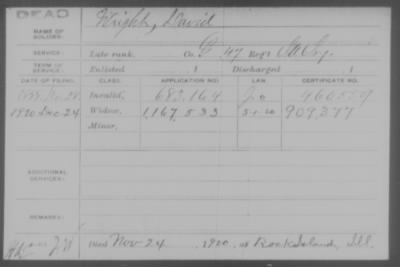 DEAD
NAME OF SOLDIER: Wright, David
SERVICE: Late rank, Co. G 47 Reg't Ill. Inf.
TERM OF SERVICE: Enlisted , 1 Discharged , 1
DATE OF FILING. CLASS. APPLICATION NO. LAW CERTIFICATE NO.
Invalid, 683,164
1920 Dec 24 Widow, 1,167,533 5-1-20 909,377
Minor,
ADDITIONAL SERVICES:
REMARKS:
Died Nov 24 1920, at Rock Island, Ill.